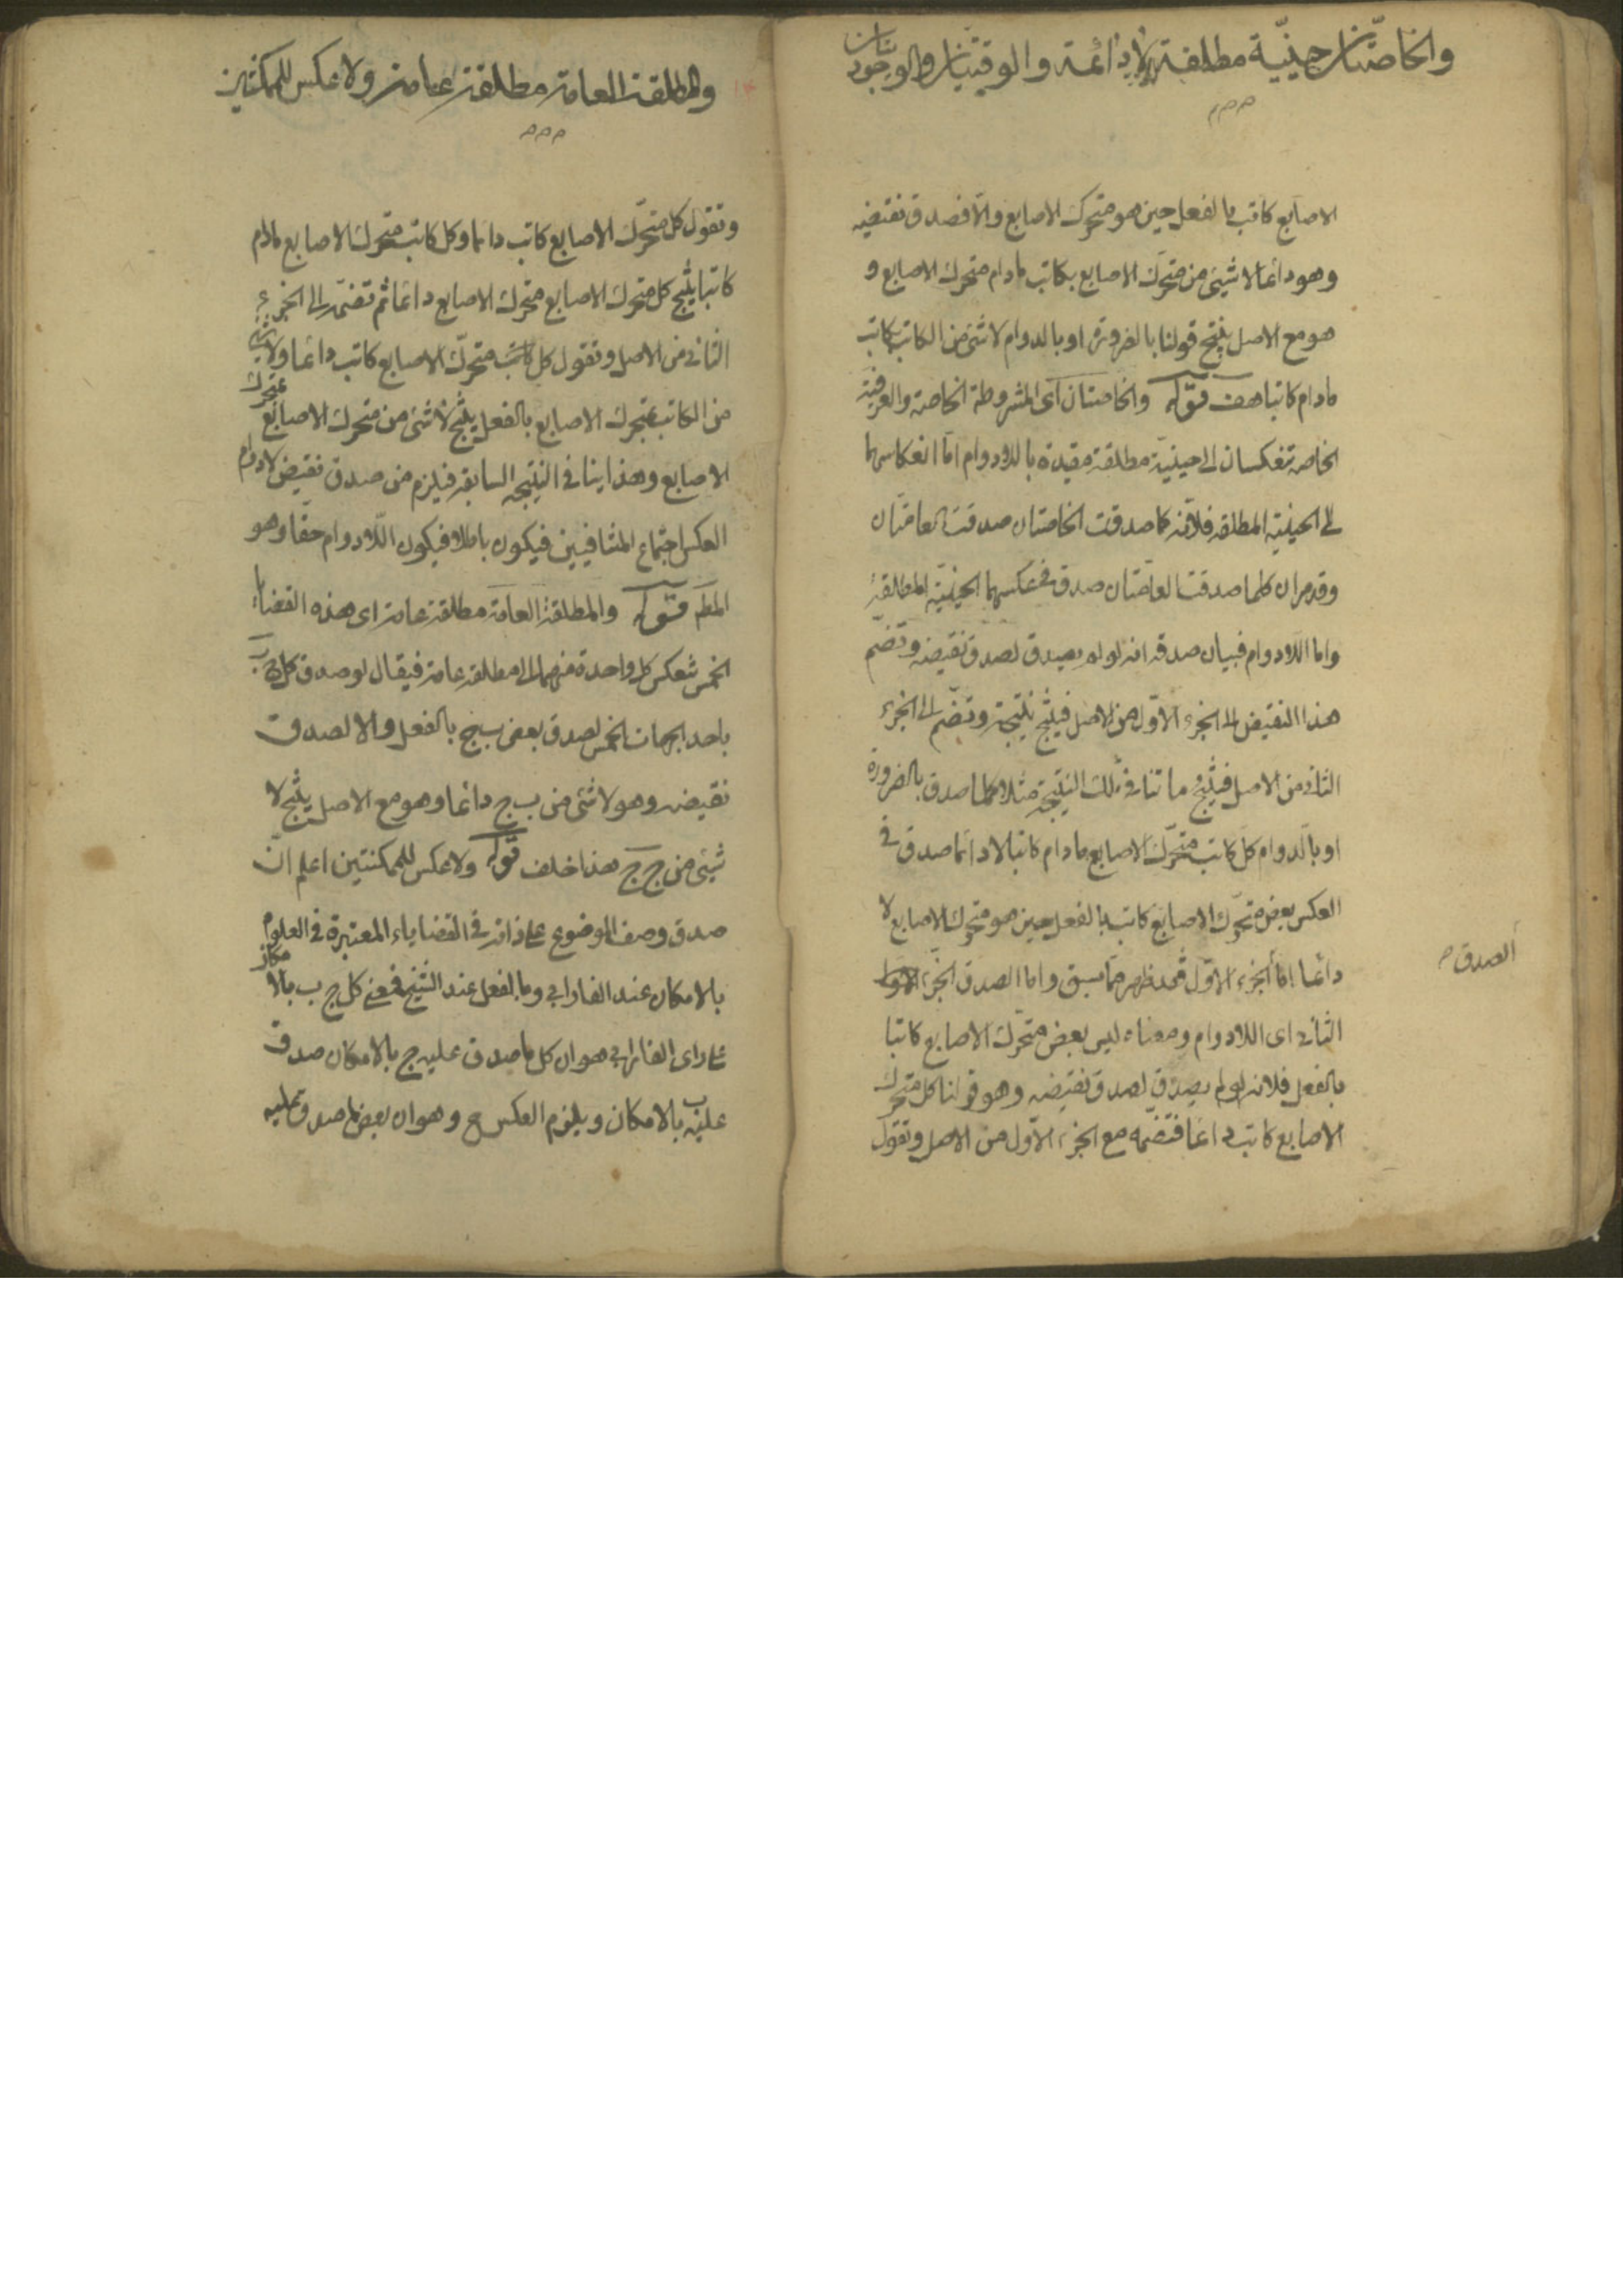 والخاصّتان حينيّة مطلقة لا دائمة والوقتيّتان والوجوديّتان
الاصابع كاتب بالفعل حين هو متحرك الاصابع والا فصدق نقيضه
وهو دائما لا شيئ من متحرّك الاصابع بكاتب مادام متحرك الاصابع و
هو مع الاصل ينتج قولنا بالضرورة او بالدوام لا شئ من الكاتب بكاتب
مادام كاتبا هف قوله والخاصتان اى المشروطة الخاصة والعرفية
الخاصة تنعكسان الى حينيّة مطلقة مقيدة باللادوام اما انعكاسهما
الى الحينية المطلقة فلانه كلما صدقت الخاصتان صدقت العامّتان
وقد مر ان كلما صدقت العامّتان صدق فى عكسهما الحينيّة المطلقة
واما اللادوام فبيان صدقه انه لو لم يصدق لصدق نقيضه وتضمّ
هذا النقيض الى الجزء الاوّل من الاصل فينتج نتيجة وتضمّ الى الجزء
الثانى من الاصل فينتج ما تنافى تلك النتيجة مثلا كلما صدق بالضرورة
او بالدوام كل كاتب متحرّك الاصابع مادام كاتبا لا دائما صدق فى
العكس بعض متحرّك الاصابع كاتب بالفعل حين هو متحرك الاصابع لا
دائما امّا الجزء الاوّل فقد ظهر ممّا سبق واما الصدق الجزء
الصدق
الثانى اى اللادوام ومعناه ليس بعض متحرّك الاصابع كاتبا
بالفعل فلانه لو لم يصدق لصدق نقيضه وهو قولنا كل متحرك
الاصابع كاتب دائما فتضمه مع الجزء الاوّل من الاصل وتقول
والمطلقة العامة مطلقة عامة ولا عكس للممكنتين
وتقول كل متحرّك الاصابع كاتب دائما وكل كاتب متحرك الاصابع مادام
كاتبا ينتج كل متحرك الاصابع متحرك الاصابع دائما ثم تضمّه الى الجزء
الثانى من الاصل وتقول كل متحرّك الاصابع كاتب دائما ولا شئ
من الكاتب بمتحرك الاصابع بالفعل ينتج لا شئ من متحرك الاصابع بمتحرك
الاصابع وهذا ينافى النتيجه السابقه فيلزم من صدق نقيض لادوام
العكس اجتماع المتنافيين فيكون باطلا فيكون اللادوام حقا وهو
المطم قوله والمطلقة العامة مطلقة عامة اى هذه القضايا
الخمس تنعكس كل واحدة منهما الى مطلقة عامة فيقال لو صدق كل ج ب
باحد الجهات الخمس لصدق بعض ب ج بالفعل والا لصدق
نقيضه وهو لا شئ من ب ج دائما وهو مع الاصل ينتج لا
شيئ من ج ج هذا خلف قوله ولا عكس للممكنتين اعلم انّ
صدق وصف الموضوع على ذاته فى القضاياء المعتبرة فى العلوم
بالامكان عند الفارابي وبالفعل عند الشيخ فمعنى كل ج ب بالامكان
على راى الفارابي هو ان كل ما صدق عليه ج بالامكان صدق
عليه ب بالامكان ويلزم العكس ح وهو ان بعض ما صدق عليه